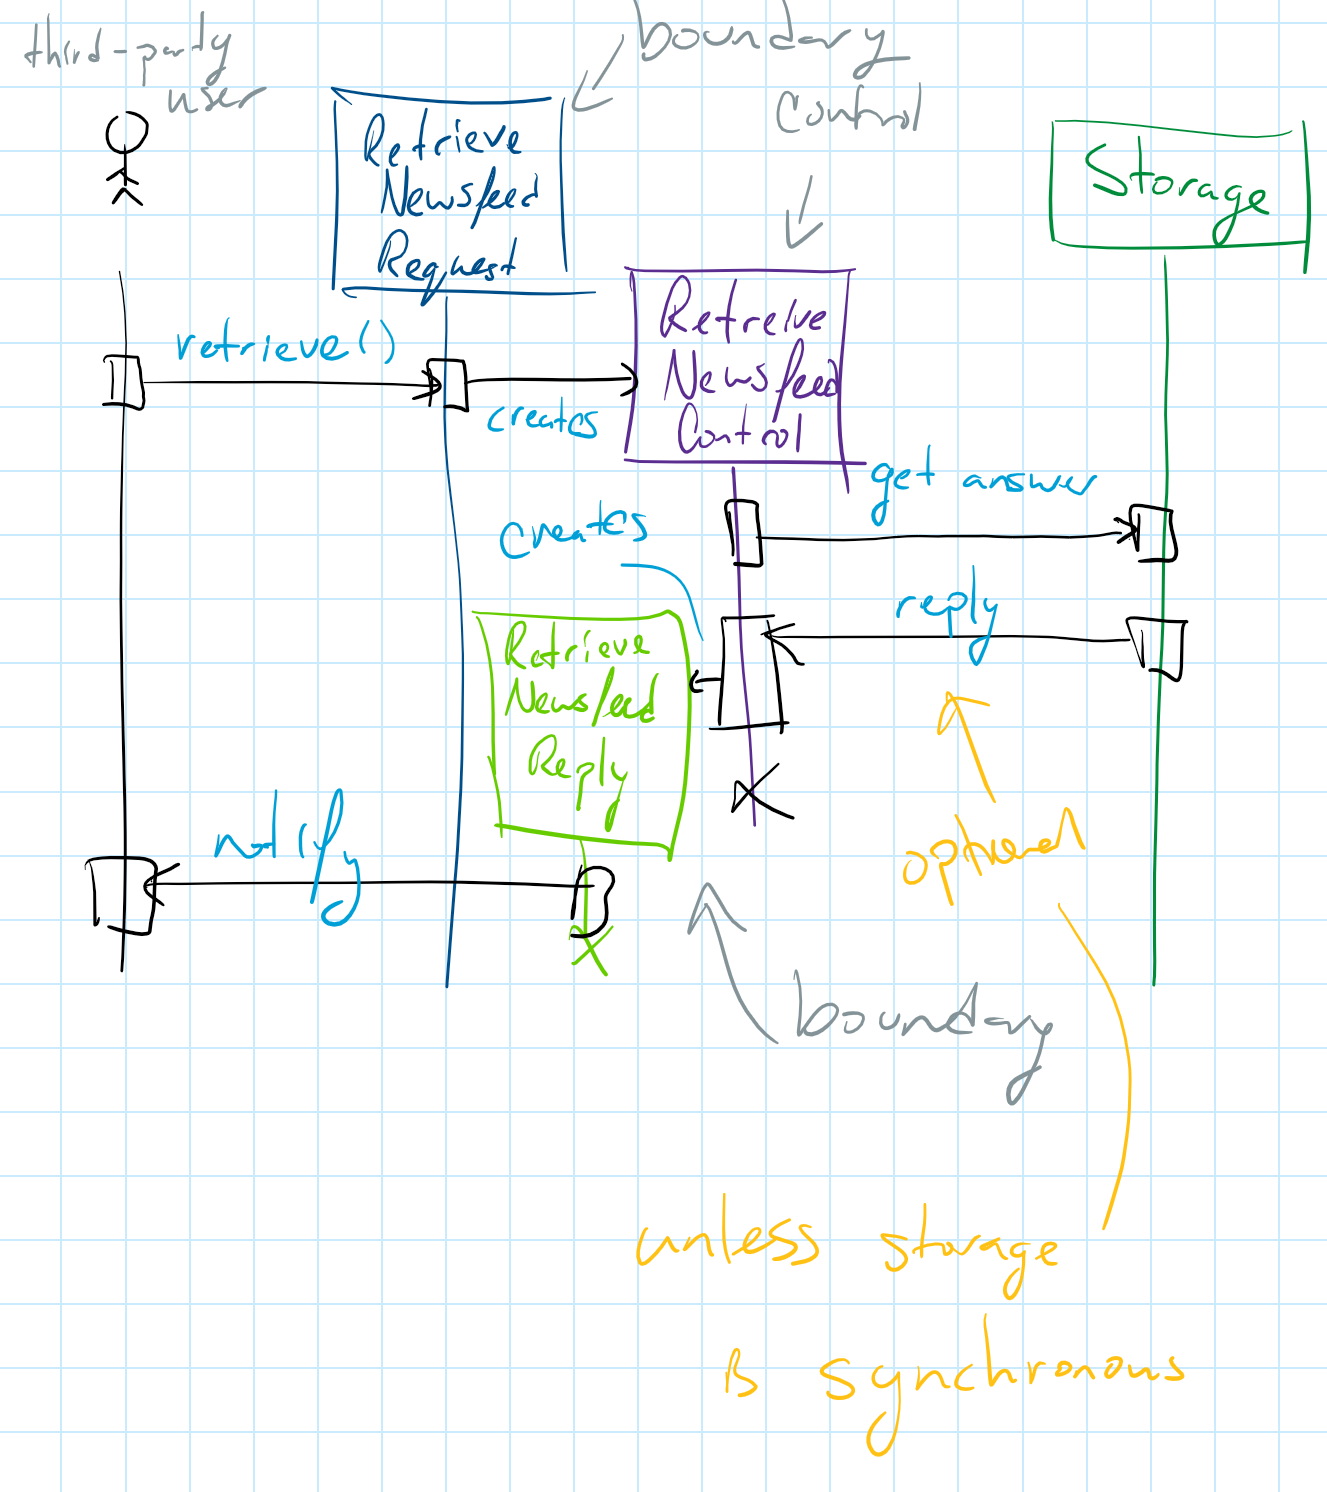 third-party
user
boundary
Control
Retrieve
Newsfeed
Request
Storage
Retreive
Newsfeed
Control
retrieve()
creates
get answer
creates
reply
Retrieve
Newsfeed
Reply
notify
optional
boundary
unless storage
is synchronous